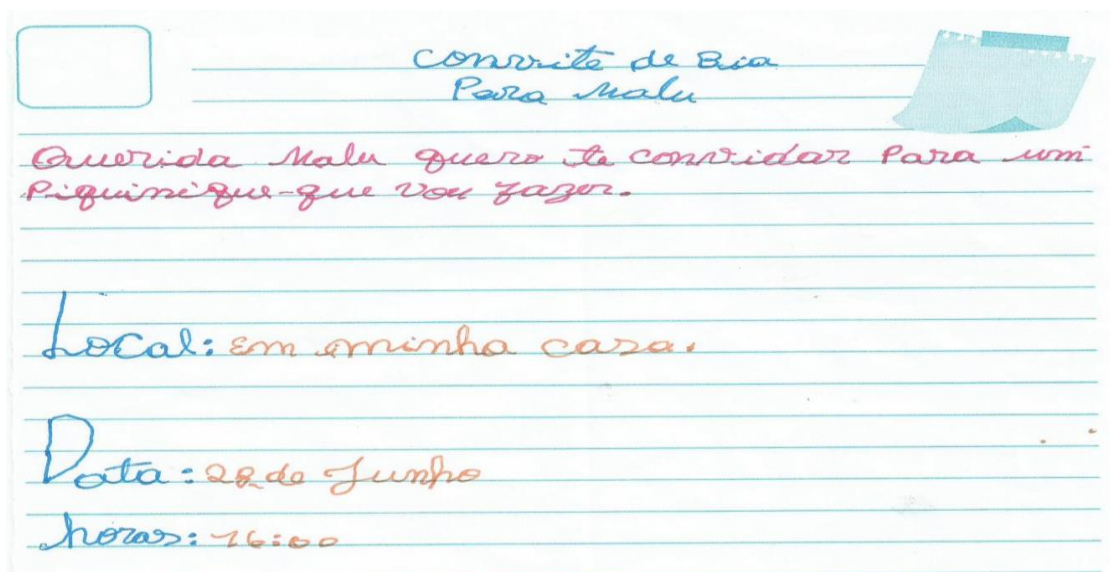 Convite de Bia
Para Malu
Querida Malu quero te convidar Para um
Piquinique-que vou fazer.
Local: Em minha casa.
Data: 28 de Junho
horas: 16:00